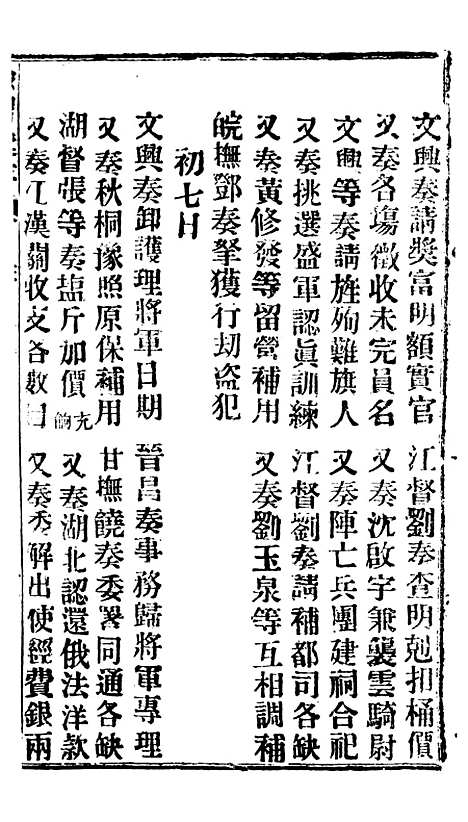 文興奏請獎富明額實官 江督劉奏查明剋扣桶價
又奏各塲徵收未完員名 又奏沈啟宇兼襲雲騎尉
文興等奏請旌殉難旗人 又奏陣亡兵團建祠合祀
又奏挑選盛軍認眞訓練 江督劉奏請補都司各缺
又奏黃修發等留營補用 又奏劉玉泉等互相調補
皖撫鄧奏拏獲行刧盜犯
初七日
文興奏卸護理將軍日期 晉昌奏事務歸將軍專理
又奏秋桐豫照原保補用 甘撫饒奏委署同通各缺
湖督張等奏塩斤加價充餉 又奏湖北認還俄法洋款
又奏江漢關收支各數目 又奏委解出使經費銀兩